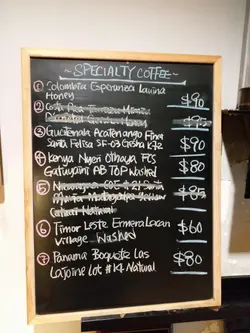 ~SPECIALTY COFFEE~
① Colombia Esperanza Lavina
Honey
$90
② Costa Rica
Honey
$95
③ Guatemala Acatenango Finca
Santa Felisa SF-03 Geisha K72
$90
④ Kenya Nyeri Othaya FCS
Gatuyaini AB TOP Washed
$80
⑤ Nicaragua COE #21 Santa
Maria Yellow
Catuai Natural
$85
⑥ Timor Leste Ermera Lacan
Village Washed
$60
⑦ Panama Boquete Las
Lajoine Lot #K4 Natural
$80